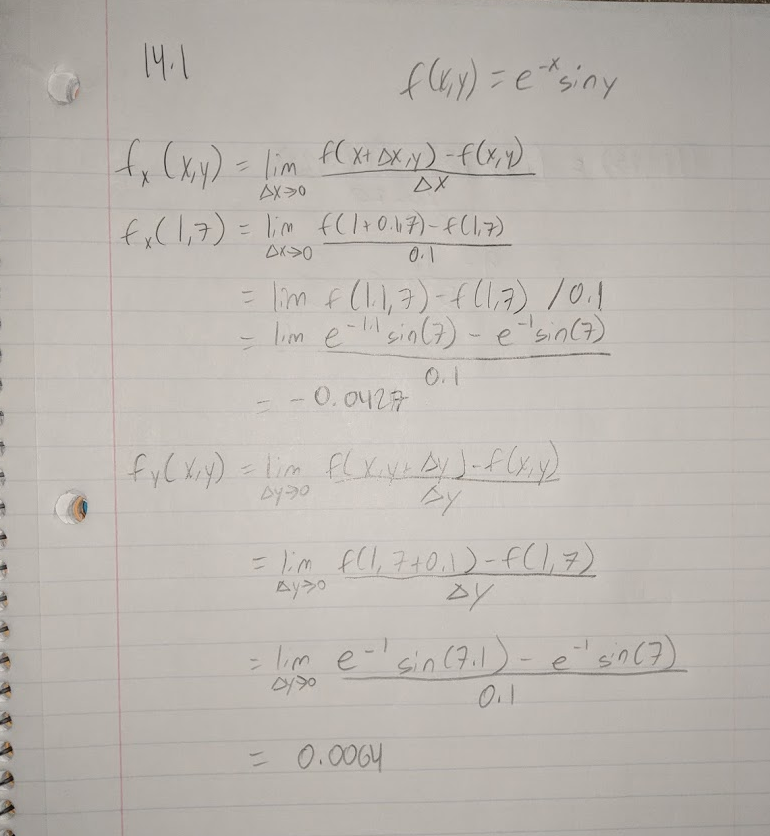 14.1
f(x,y) = e^-x sin y
f_x (x,y) = lim Δx→0 f(x+Δx,y) - f(x,y) / Δx
f_x (1,7) = lim Δx→0 f(1+0.1,7) - f(1,7) / 0.1
= lim f(1.1,7) - f(1,7) / 0.1
= lim e^-1.1 sin(7) - e^-1 sin(7) / 0.1
= -0.0427
f_y (x,y) = lim Δy→0 f(x,y+Δy) - f(x,y) / Δy
= lim Δy→0 f(1, 7+0.1) - f(1,7) / Δy
= lim Δy→0 e^-1 sin(7.1) - e^-1 sin(7) / 0.1
= 0.0064